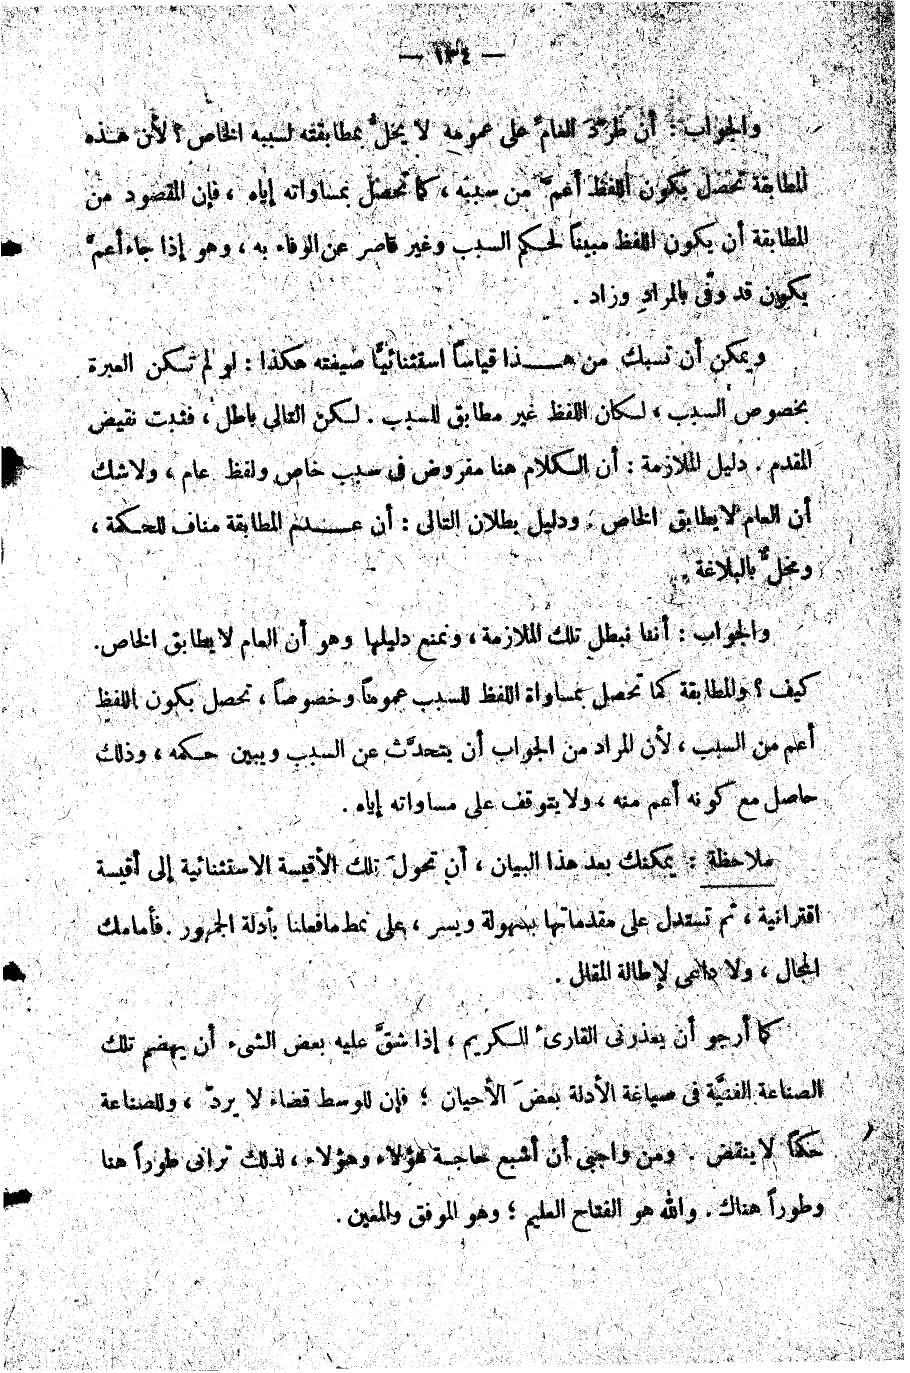 — ١٣٤ —
والجواب : أن طَرْدَ العامّ على عمومه لا يخلُّ بمطابقته لسببه الخاص ؟ لأن هذه
المطابقة تحصل بكون اللفظ أعمَّ من سببه ، كما تحصل بمساواته إياه ، فإن المقصود من
المطابقة أن يكون اللفظ مبيناً لحكم السبب وغير قاصر عن الوفاء به ، وهو إذا جاء أعمَّ
يكون قد وفّى بالمراد وزاد .
ويمكن أن تسبك من هذا قياساً استثنائيًّا صيغته هكذا : لو لم تكن العبرة
بخصوص السبب ، لكان اللفظ غير مطابق للسبب . لكن التالي باطل ، فثبت نقيض
المقدم . دليل الملازمة : أن الكلام هنا مفروض فى سبب خاص ولفظ عام ، ولا شك
أن العام لا يطابق الخاص . ودليل بطلان التالى : أن عدم المطابقة مناف للحكمة ،
ومخلٌّ بالبلاغة .
والجواب : أننا نبطل تلك الملازمة ، ونمنع دليلها وهو أن العام لا يطابق الخاص.
كيف ؟ والمطابقة كما تحصل بمساواة اللفظ للسبب عموماً وخصوصاً ، تحصل بكون اللفظ
أعم من السبب ، لأن المراد من الجواب أن يتحدَّث عن السبب ويبين حكمه ، وذلك
حاصل مع كونه أعم منه ، ولا يتوقف على مساواته إياه .
ملاحظة : يمكنك بعد هذا البيان ، أن تحولَ تلك الأقيسة الاستثنائية إلى أقيسة
اقترانية ، ثم تستدل على مقدماتها بسهولة ويسر ، على نمط ما فعلنا بأدلة الجمهور . فأمامك
المجال ، ولا داعى لإطالة المقال .
كما أرجو أن يعذرنى القارئ الكريم ، إذا شقَّ عليه بعض الشىء أن يهضم تلك
الصناعة الفنيَّة فى صياغة الأدلة بعضَ الأحيان ؛ فإن للوسط قضاء لا يردّ ، وللصناعة
حكماً لا ينقض . ومن واجبى أن أشبع حاجة هؤلاء وهؤلاء ، لذلك ترانى طوراً هنا
وطوراً هناك . والله هو الفتاح العليم ؛ وهو الموفق والمعين .